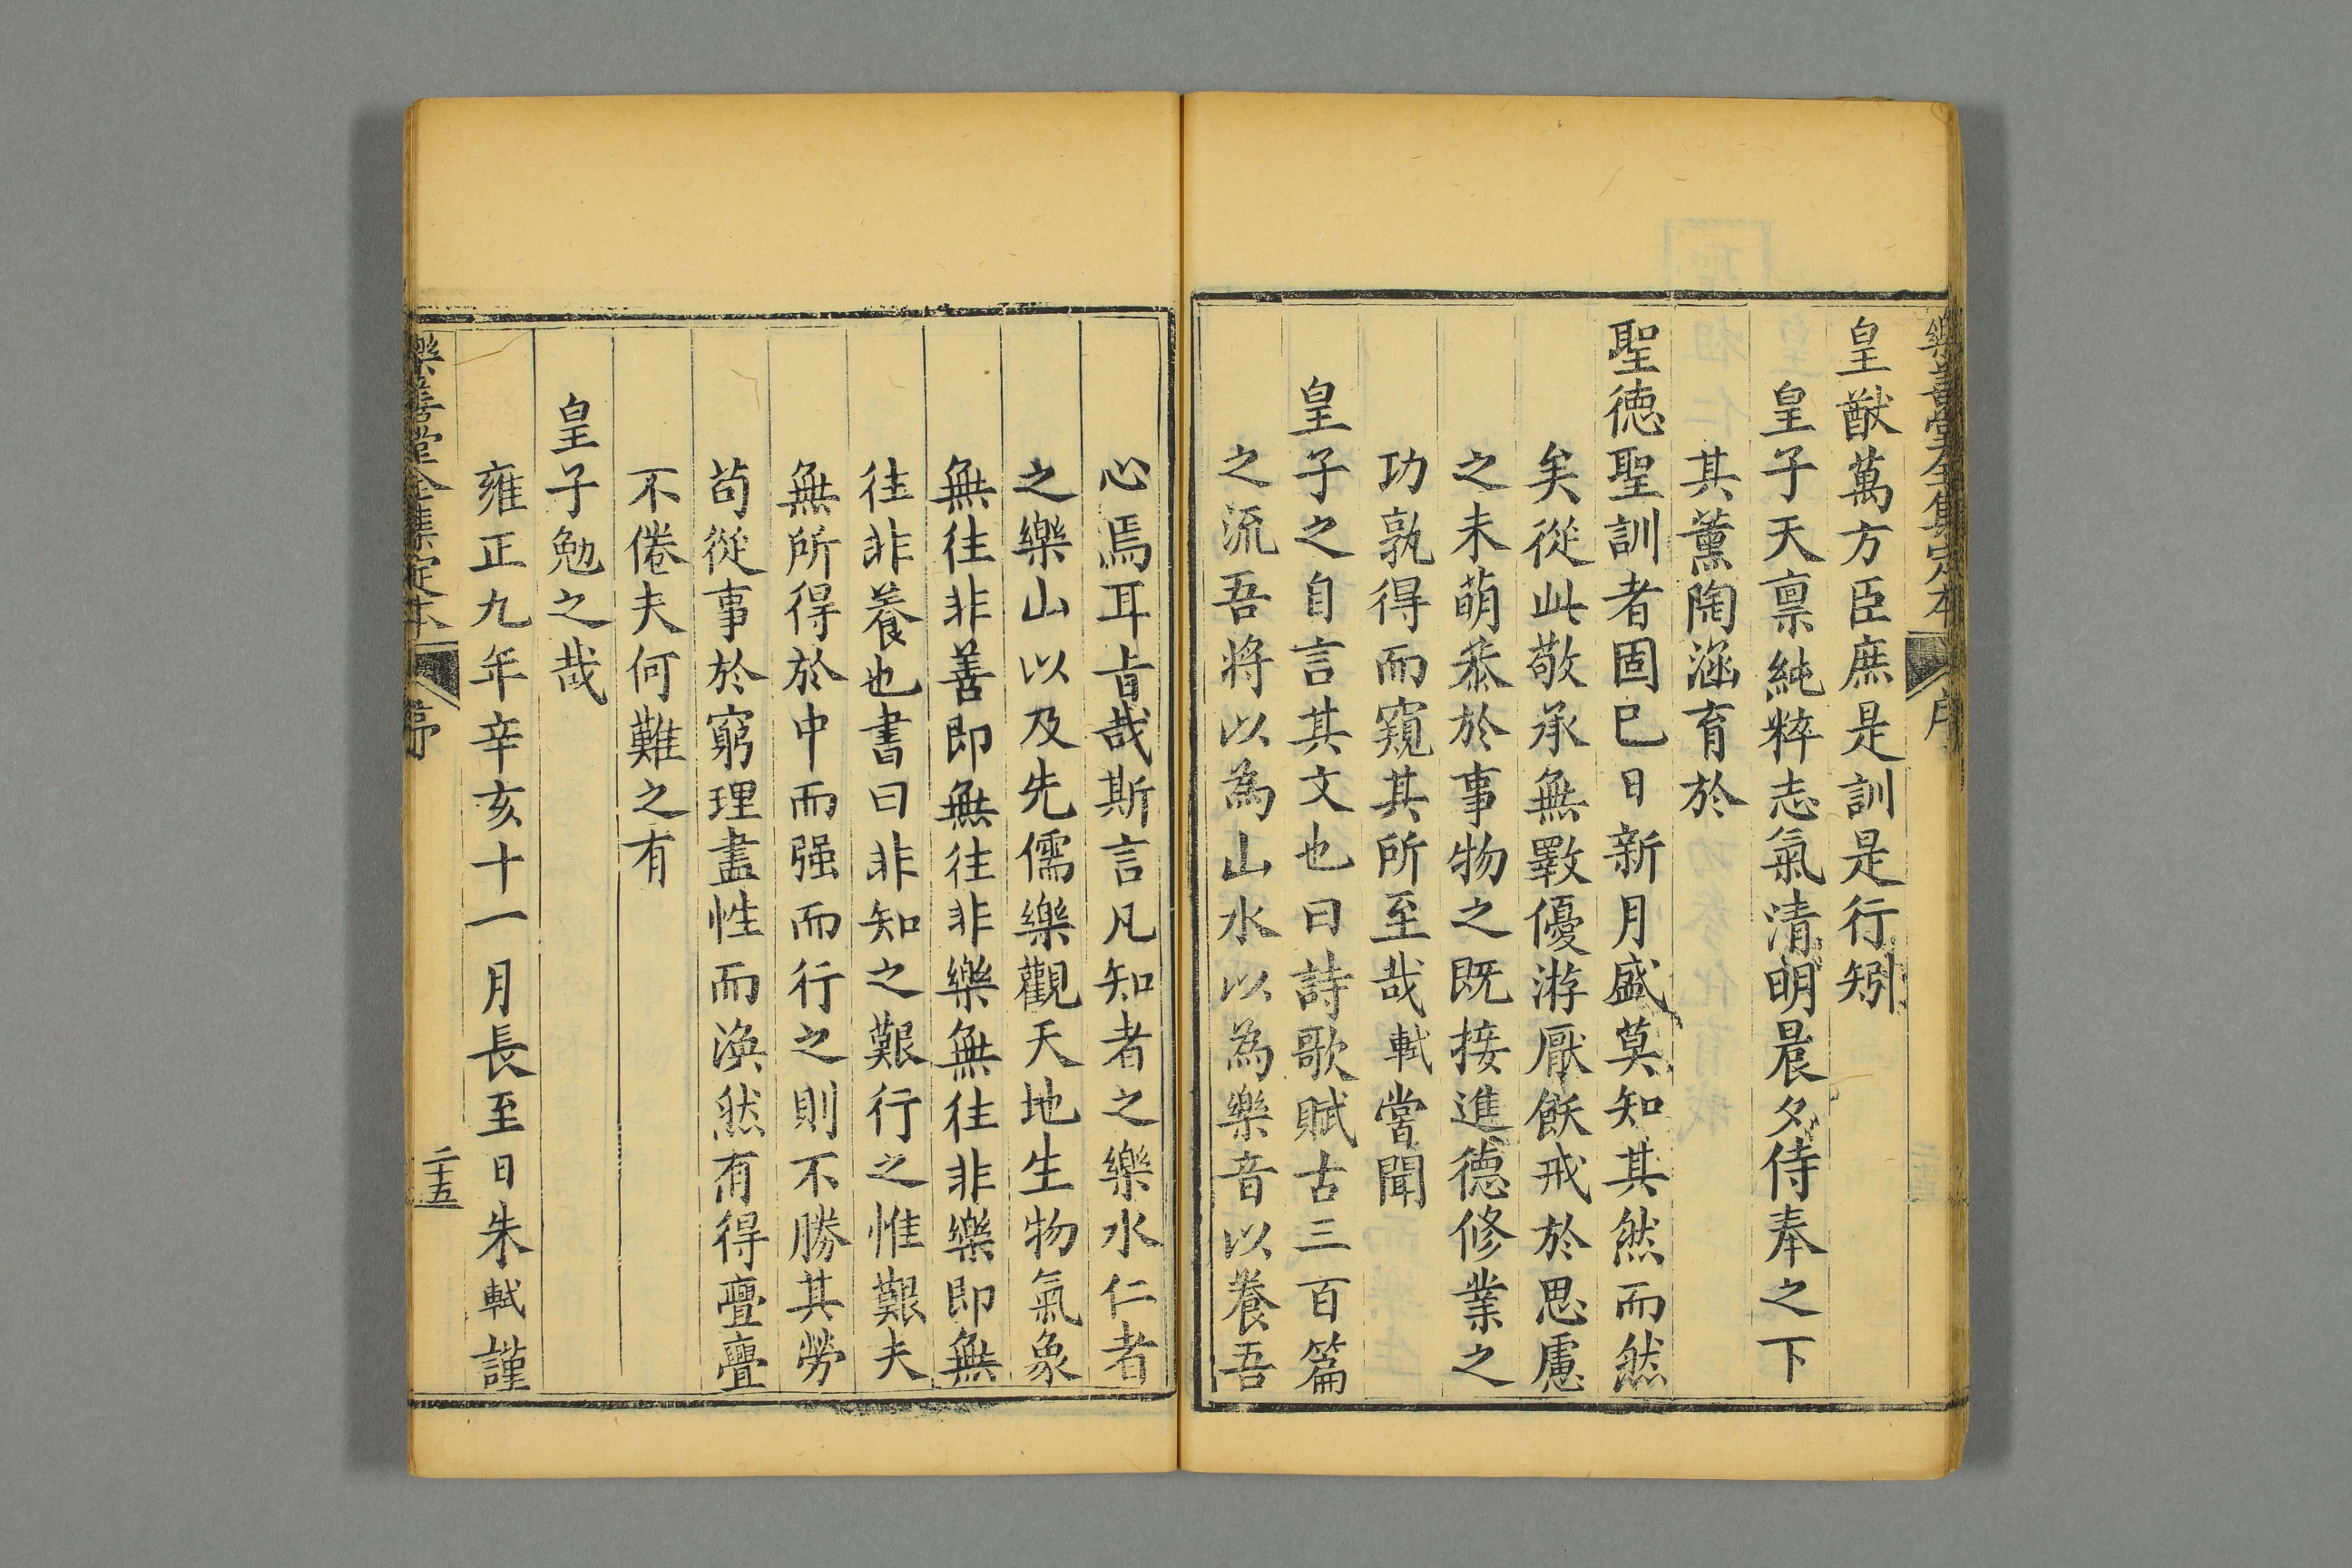 樂善堂全集定本 序
皇猷萬方臣庶是訓是行矧
皇子天禀純粹志氣清明晨夕侍奉之下
其薰陶涵育於
聖德聖訓者固已日新月盛莫知其然而然
矣從此敬承無斁優游厭飫戒於思慮
之未萌叅於事物之既接進德修業之
功孰得而窺其所至哉軾嘗聞
皇子之自言其文也曰詩歌賦古三百篇
之流吾將以為山水以為樂音以養吾
心焉耳旨哉斯言凡知者之樂水仁者
之樂山以及先儒樂觀天地生物氣象
無往非善即無往非樂無往非樂即無
往非養也書曰非知之艱行之惟艱夫
無所得於中而强而行之則不勝其勞
苟從事於窮理盡性而渙然有得亹亹
不倦夫何難之有
皇子勉之哉
雍正九年辛亥十一月長至日朱軾謹
樂善堂全集定本 序 二十五